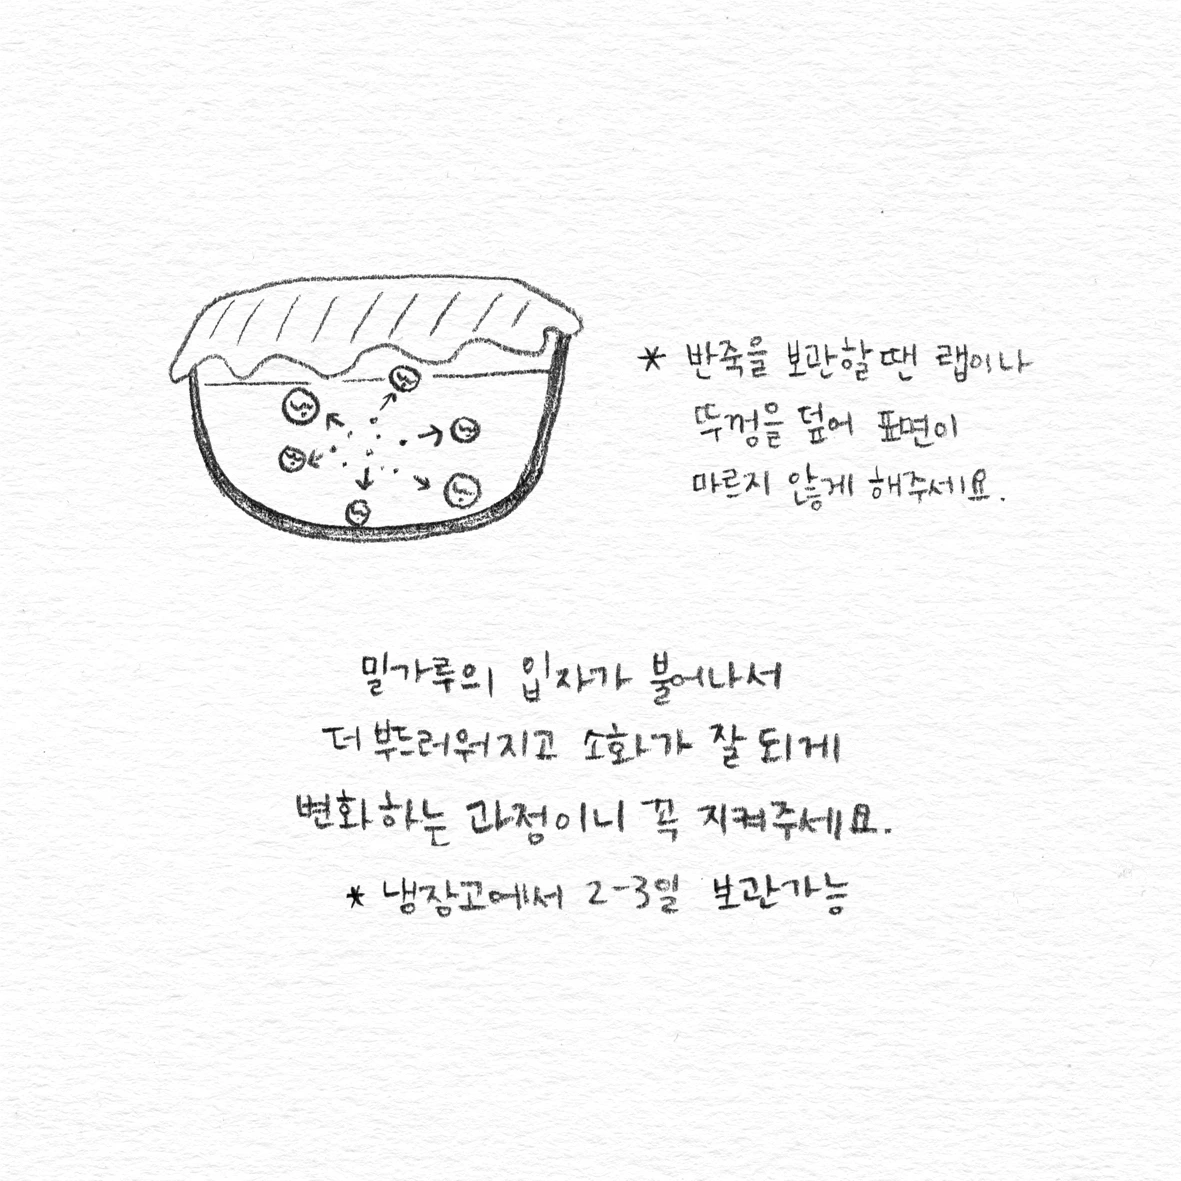 * 반죽을 보관할 땐 랩이나
뚜껑을 덮어 표면이
마르지 않게 해주세요.
밀가루의 입자가 불어나서
더 부드러워지고 소화가 잘 되게
변화하는 과정이니 꼭 지켜주세요.
* 냉장고에서 2-3일 보관가능